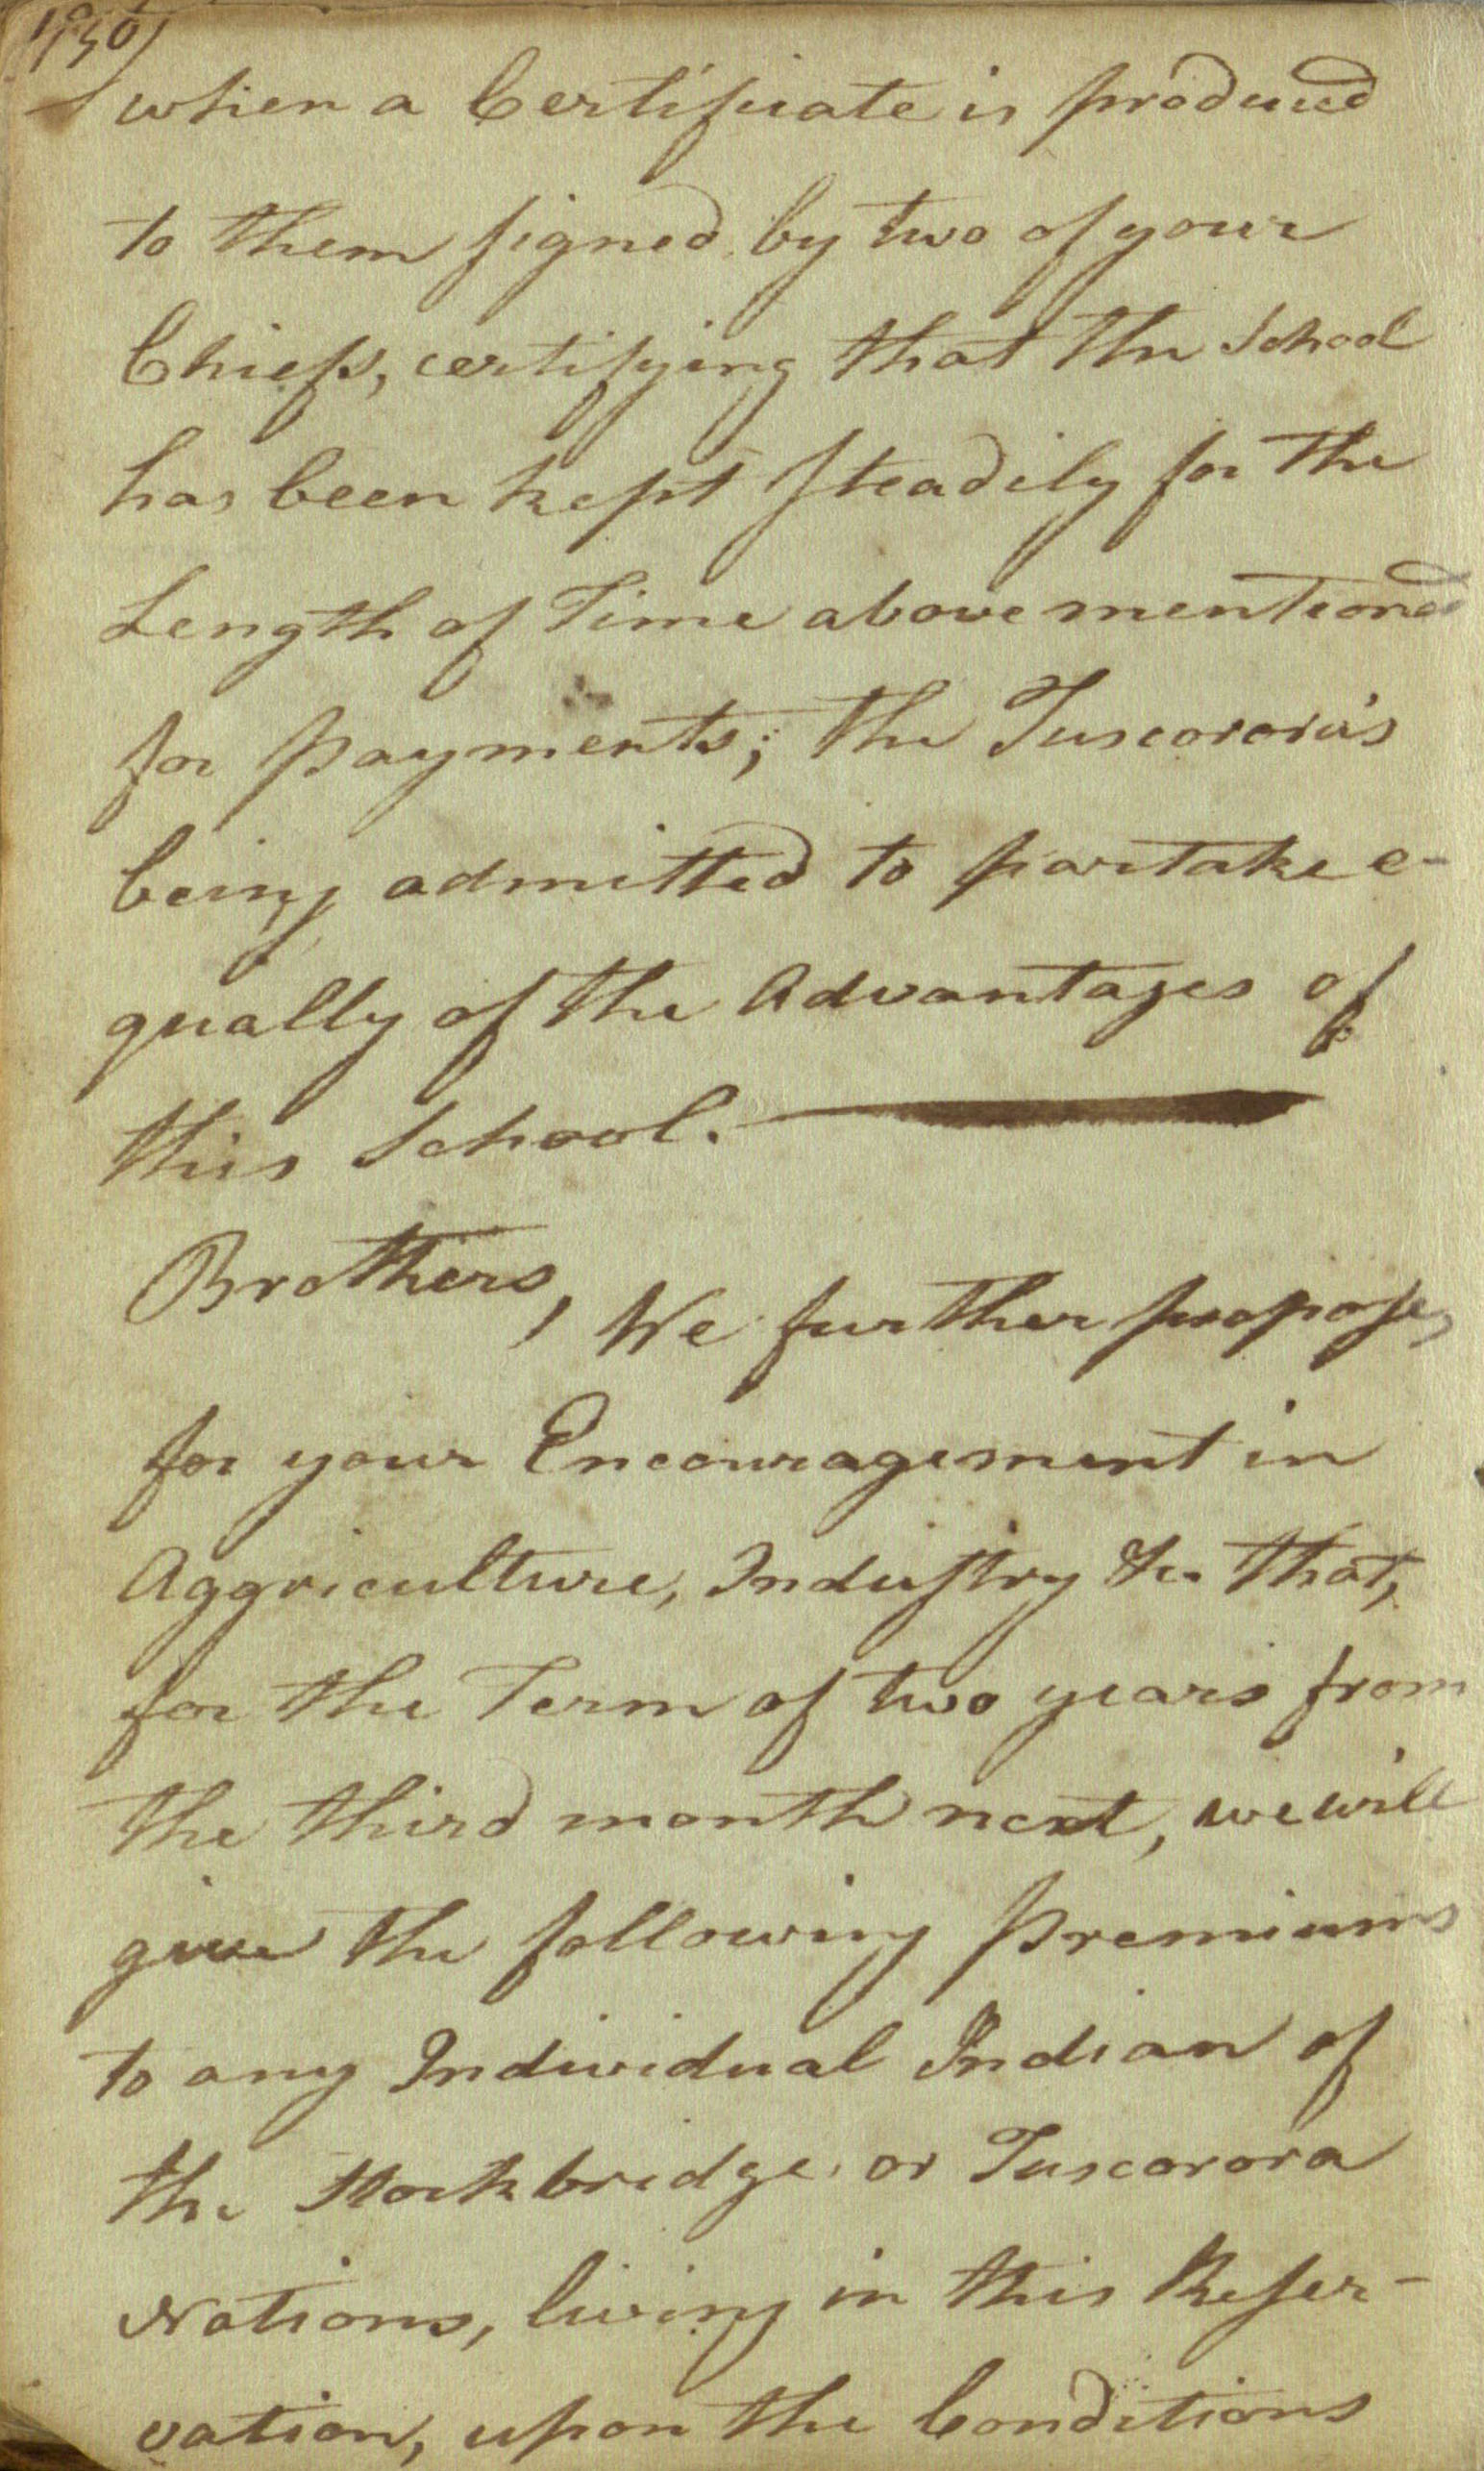 when a Certificate is produced
to them signed by two of your
Chiefs, certifying that the School
has been kept steadily for the
Length of Time above mentioned
for payments; the Tuscorora's
being admitted to partake e-
qually of the Advantages of
this School.
Brothers, We further propose,
for your Encouragement in
Aggriculture, Industry &c. that,
for the Term of two years from
the third month next, we will
give the following Premiums
to any Individual Indian of
the Stockbridge or Tuscorora
Nations, living in this Reser-
vation, upon the Conditions